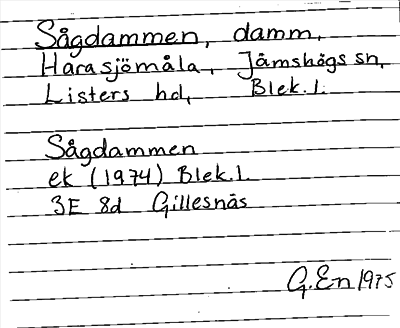 Sågdammen, damm,
Harasjömåla, Jämshögs sn,
Listers hd, Blek.l.
Sågdammen
ek (1974) Blek.l.
3E 8d Gillesnäs
G.En 1975